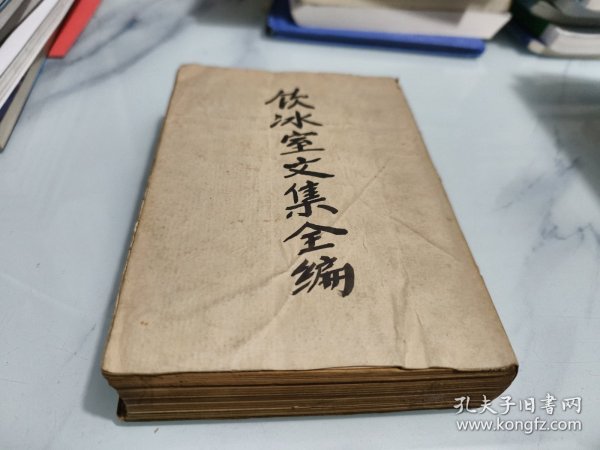 饮冰室文集全编
孔夫子旧书网
www.kongfz.com